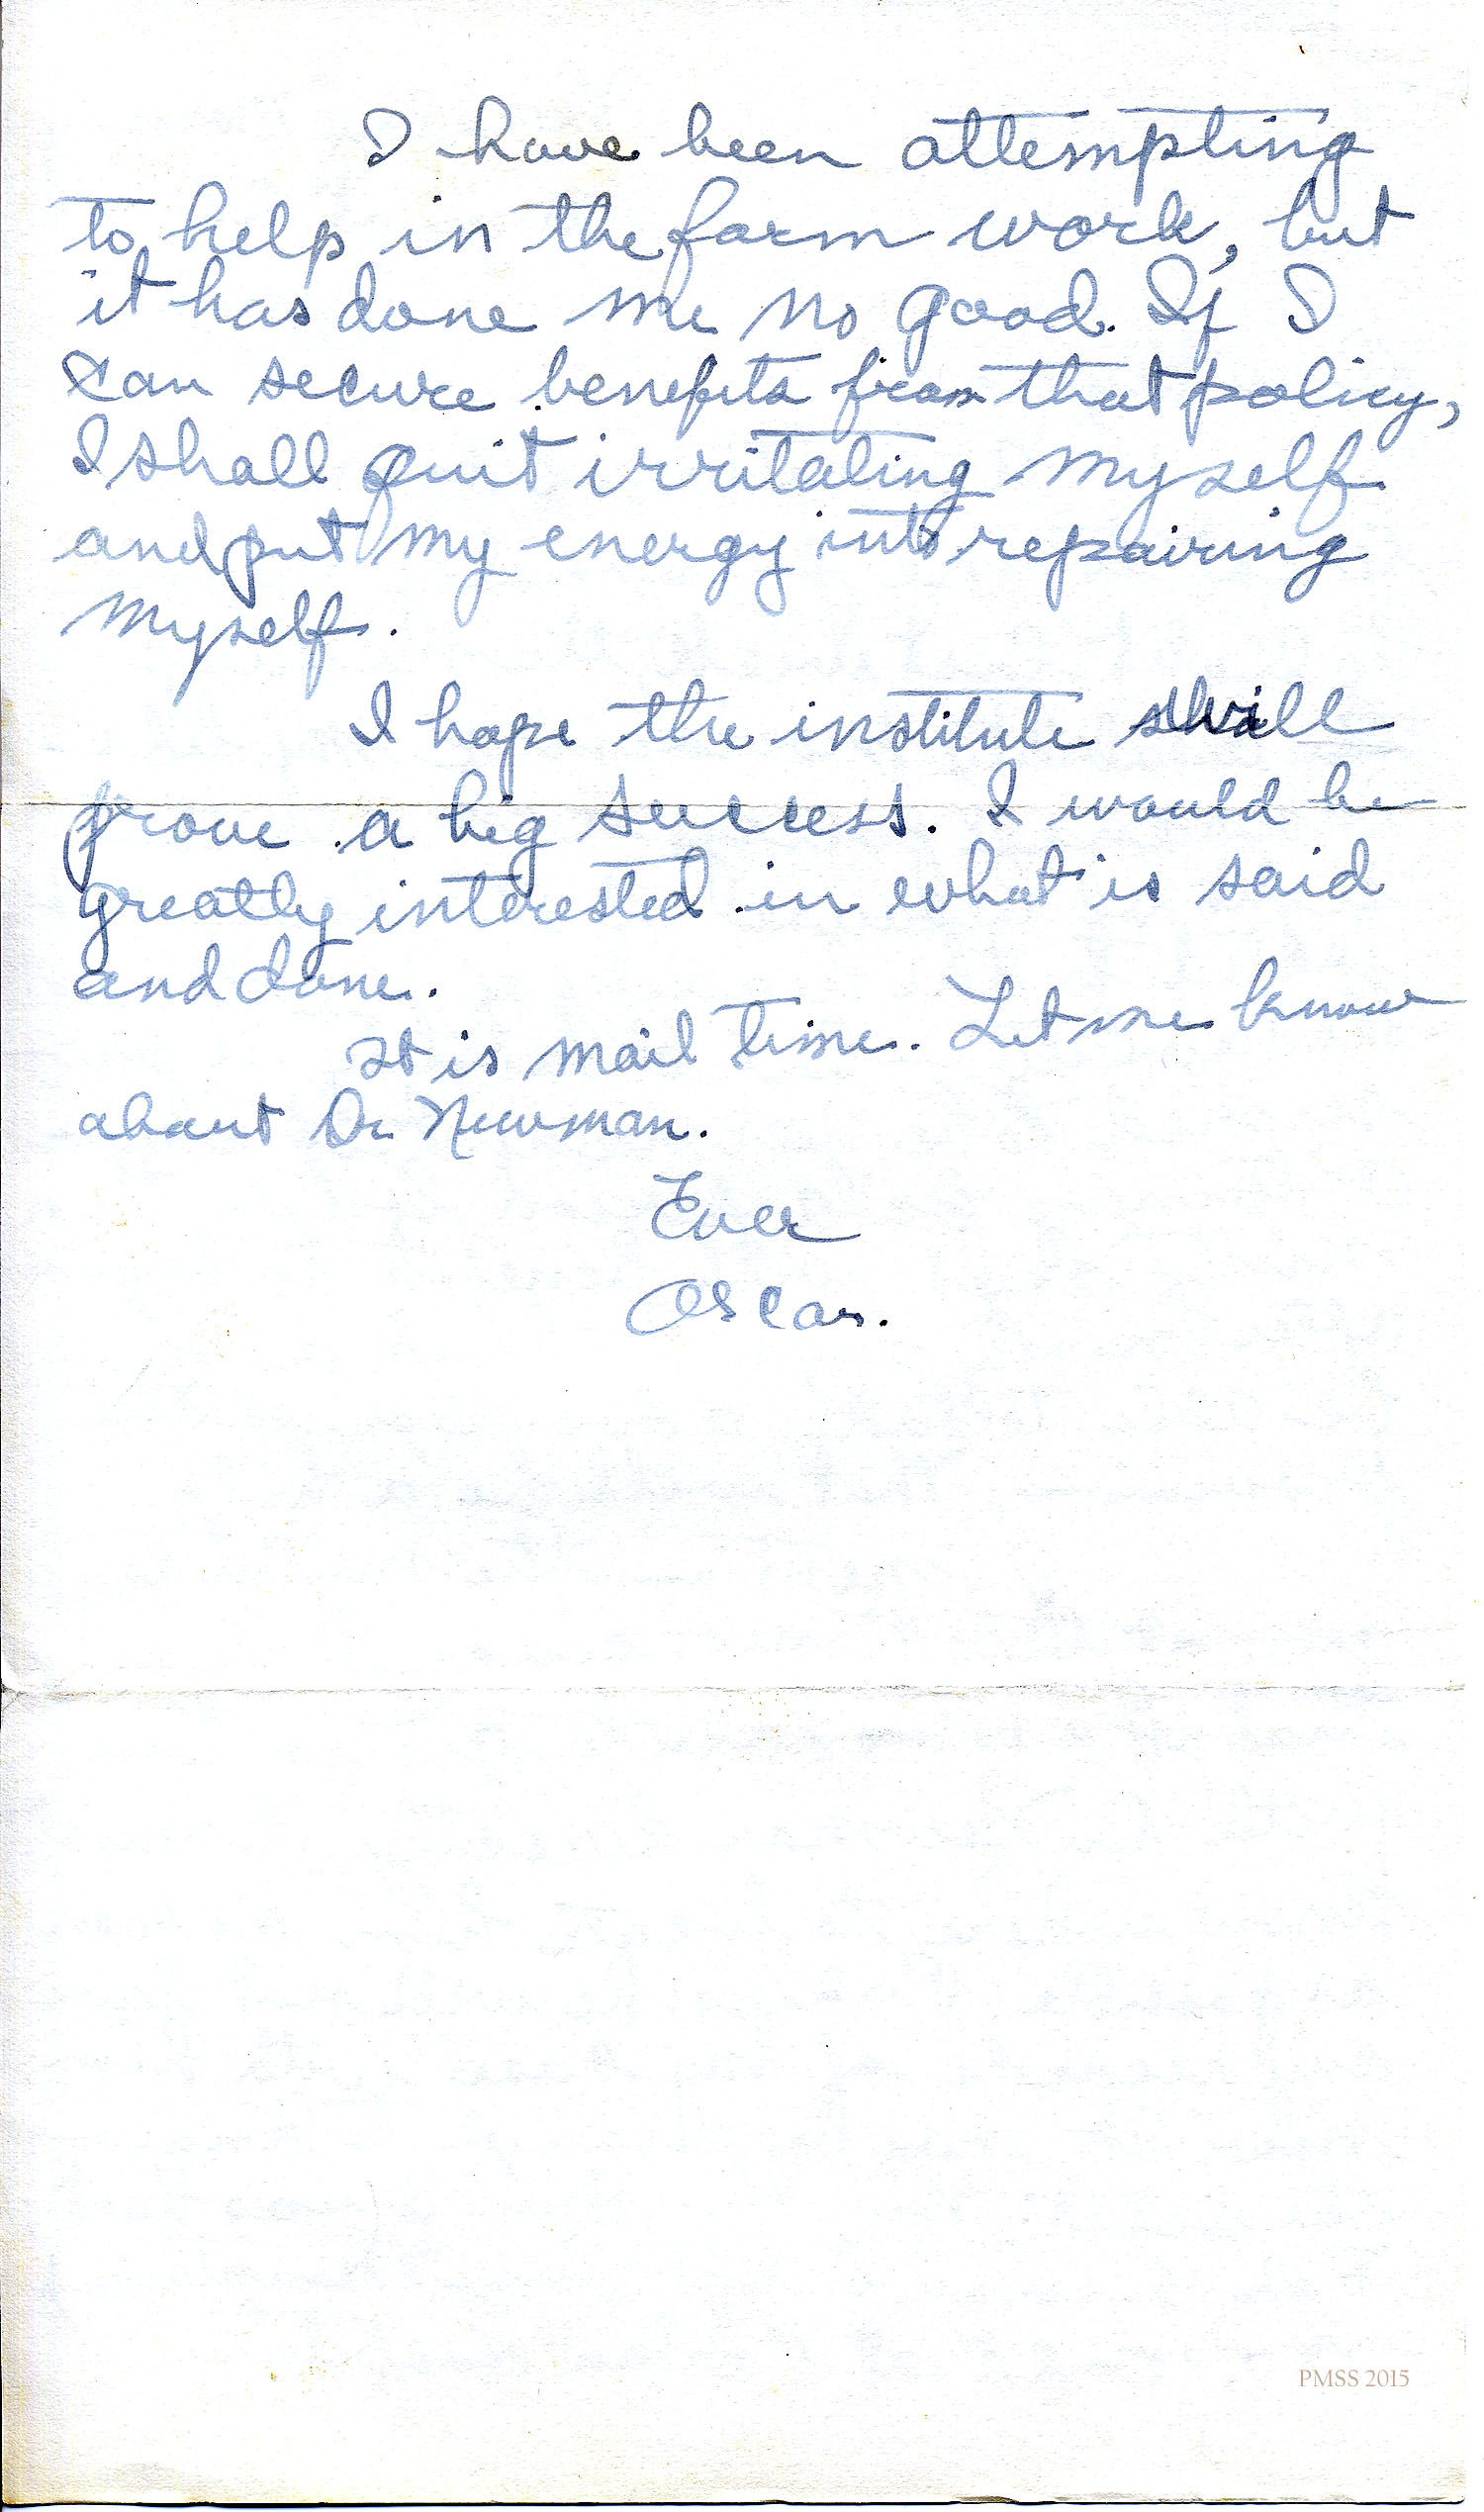 I have been attempting
to help in the farm work, but
it has done me no good. If I
can secure benefits from that policy,
I shall quit irritating myself
and put my energy into repairing
myself.
I hope the institute will
prove a big success. I would be
greatly interested in what is said
and done.
It is mail time. Let me know
about Dr. Newman.
Ever
Oscar.
PMSS 2015